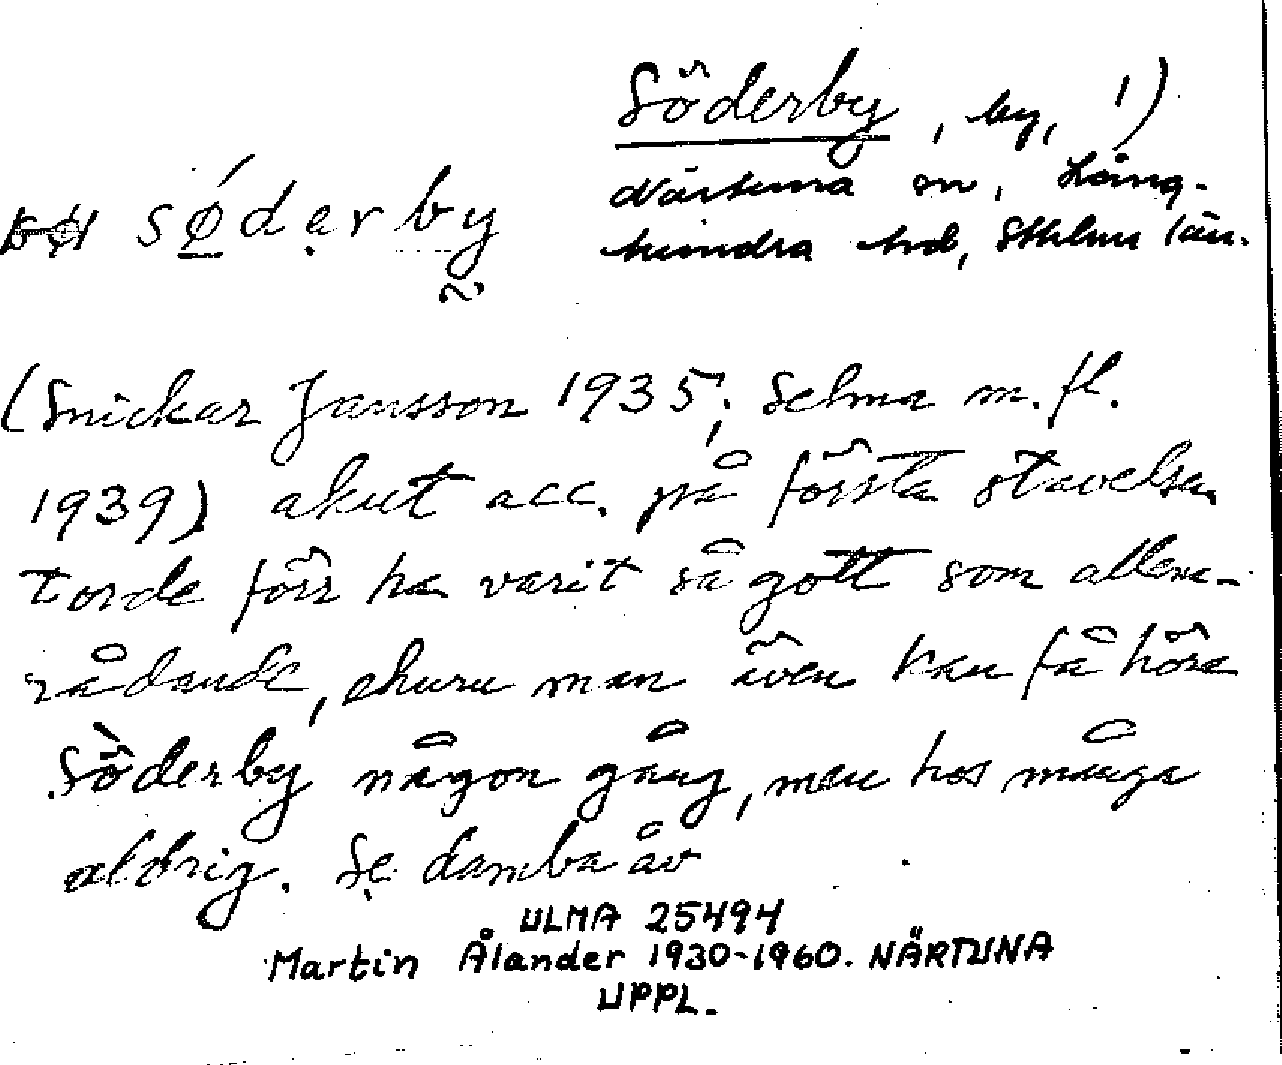 Söderby, by, 1)
Närtuna sn, Lång-
hundra hd, Sthlms län.
sǿdẹrby
(Snickar Jansson 1935; Selma m. fl.
1939) akut acc. på första stavelsen
torde förr ha varit så gott som allena-
rådande, ehuru man även kan få höra
Sö̀derby någon gång, men hos många
aldrig. Se dambaåv
ULMA 25494
Martin Ålander 1930-1960. NÄRTUNA
UPPL.